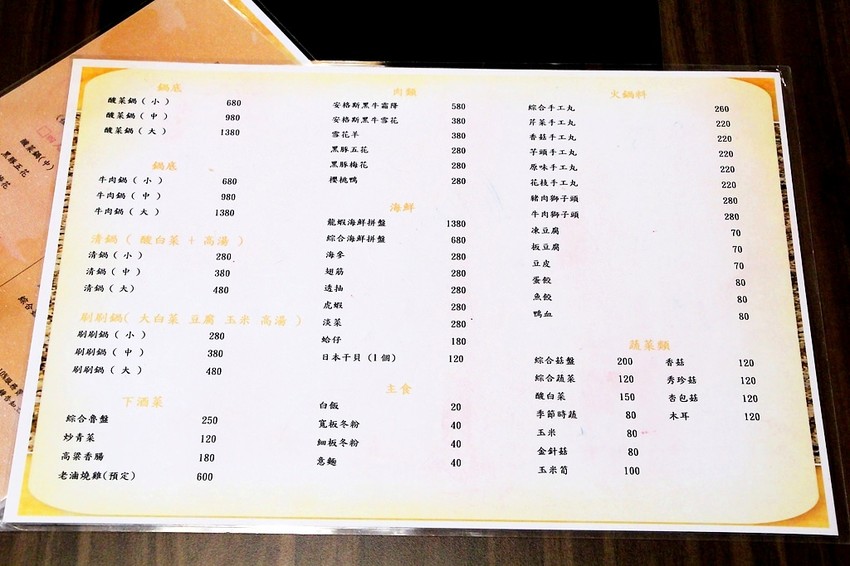 鍋底
酸菜鍋（小） 680
酸菜鍋（中） 980
酸菜鍋（大） 1380
鍋底
牛肉鍋（小） 680
牛肉鍋（中） 980
牛肉鍋（大） 1380
清鍋（酸白菜 + 高湯）
清鍋（小） 280
清鍋（中） 380
清鍋（大） 480
刷刷鍋（大白菜 豆腐 玉米 高湯）
刷刷鍋（小） 280
刷刷鍋（中） 380
刷刷鍋（大） 480
下酒菜
綜合魯盤 250
炒青菜 120
高粱香腸 180
老滷燒雞(預定) 600
肉類
安格斯黑牛霜降 580
安格斯黑牛雪花 380
雪花羊 380
黑豚五花 280
黑豚梅花 280
櫻桃鴨 280
海鮮
龍蝦海鮮拼盤 1380
綜合海鮮拼盤 680
海參 280
翅筋 280
透抽 280
虎蝦 280
淡菜 280
蛤仔 180
日本干貝（1個） 120
主食
白飯 20
寬板冬粉 40
細板冬粉 40
意麵 40
火鍋料
綜合手工丸 260
芹菜手工丸 220
香菇手工丸 220
芋頭手工丸 220
原味手工丸 220
花枝手工丸 220
豬肉獅子頭 280
牛肉獅子頭 280
凍豆腐 70
板豆腐 70
豆皮 70
蛋餃 80
魚餃 80
鴨血 80
蔬菜類
綜合菇盤 200 香菇 120
綜合蔬菜 120 秀珍菇 120
酸白菜 150 杏包菇 120
季節時蔬 80 木耳 120
玉米 80
金針菇 80
玉米筍 100
酸菜鍋(中)
黑豚五花
綜合